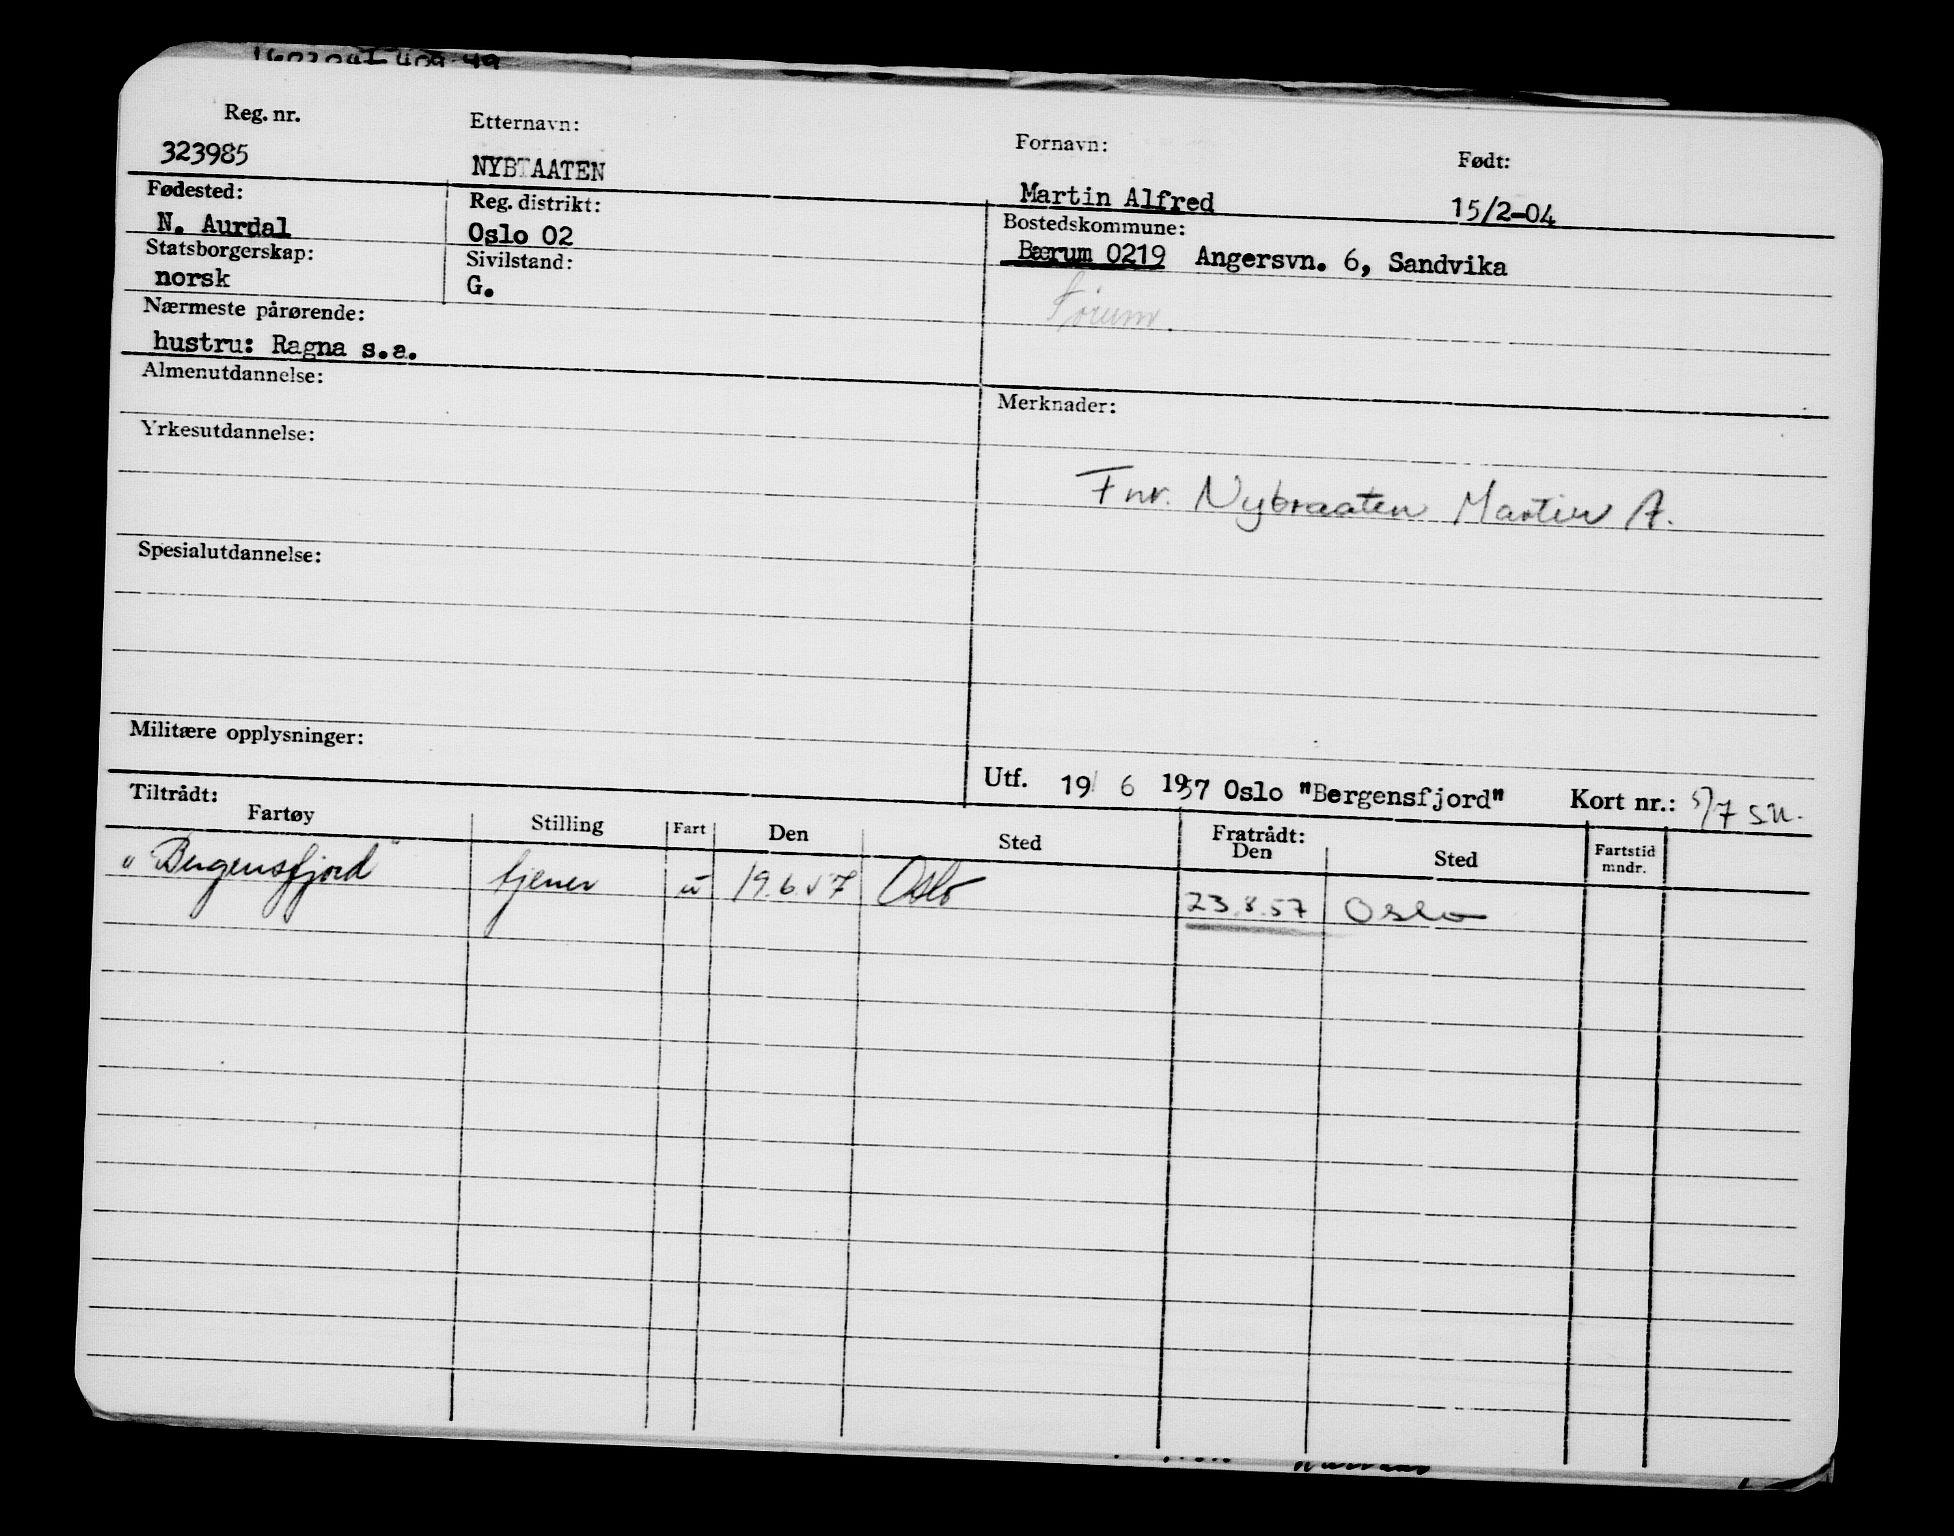 Reg. nr. Etternavn: Fornavn: Født:
323985 NYBTAATEN Martin Alfred 15/2-04
Fødested: Reg. distrikt: Bostedskommune:
N. Aurdal Oslo 02 Bærum 0219 Angersvn. 6, Sandvika
Statsborgerskap: Sivilstand:
norsk G.
Nærmeste pårørende:
hustru: Ragna s.a.
Almenutdannelse: Merknader:
Yrkesutdannelse:
Fnr. Nybraaten Martin A.
Spesialutdannelse:
Militære opplysninger:
Utf. 19 6 1957 Oslo "Bergensfjord" Kort nr.:
Tiltrådt: Fratrådt:
Fartøy Stilling Fart Den Sted Den Sted Fartstid mndr.
"Bergensfjord" tjener u 19.6.57 Oslo 23.8.57 Oslo